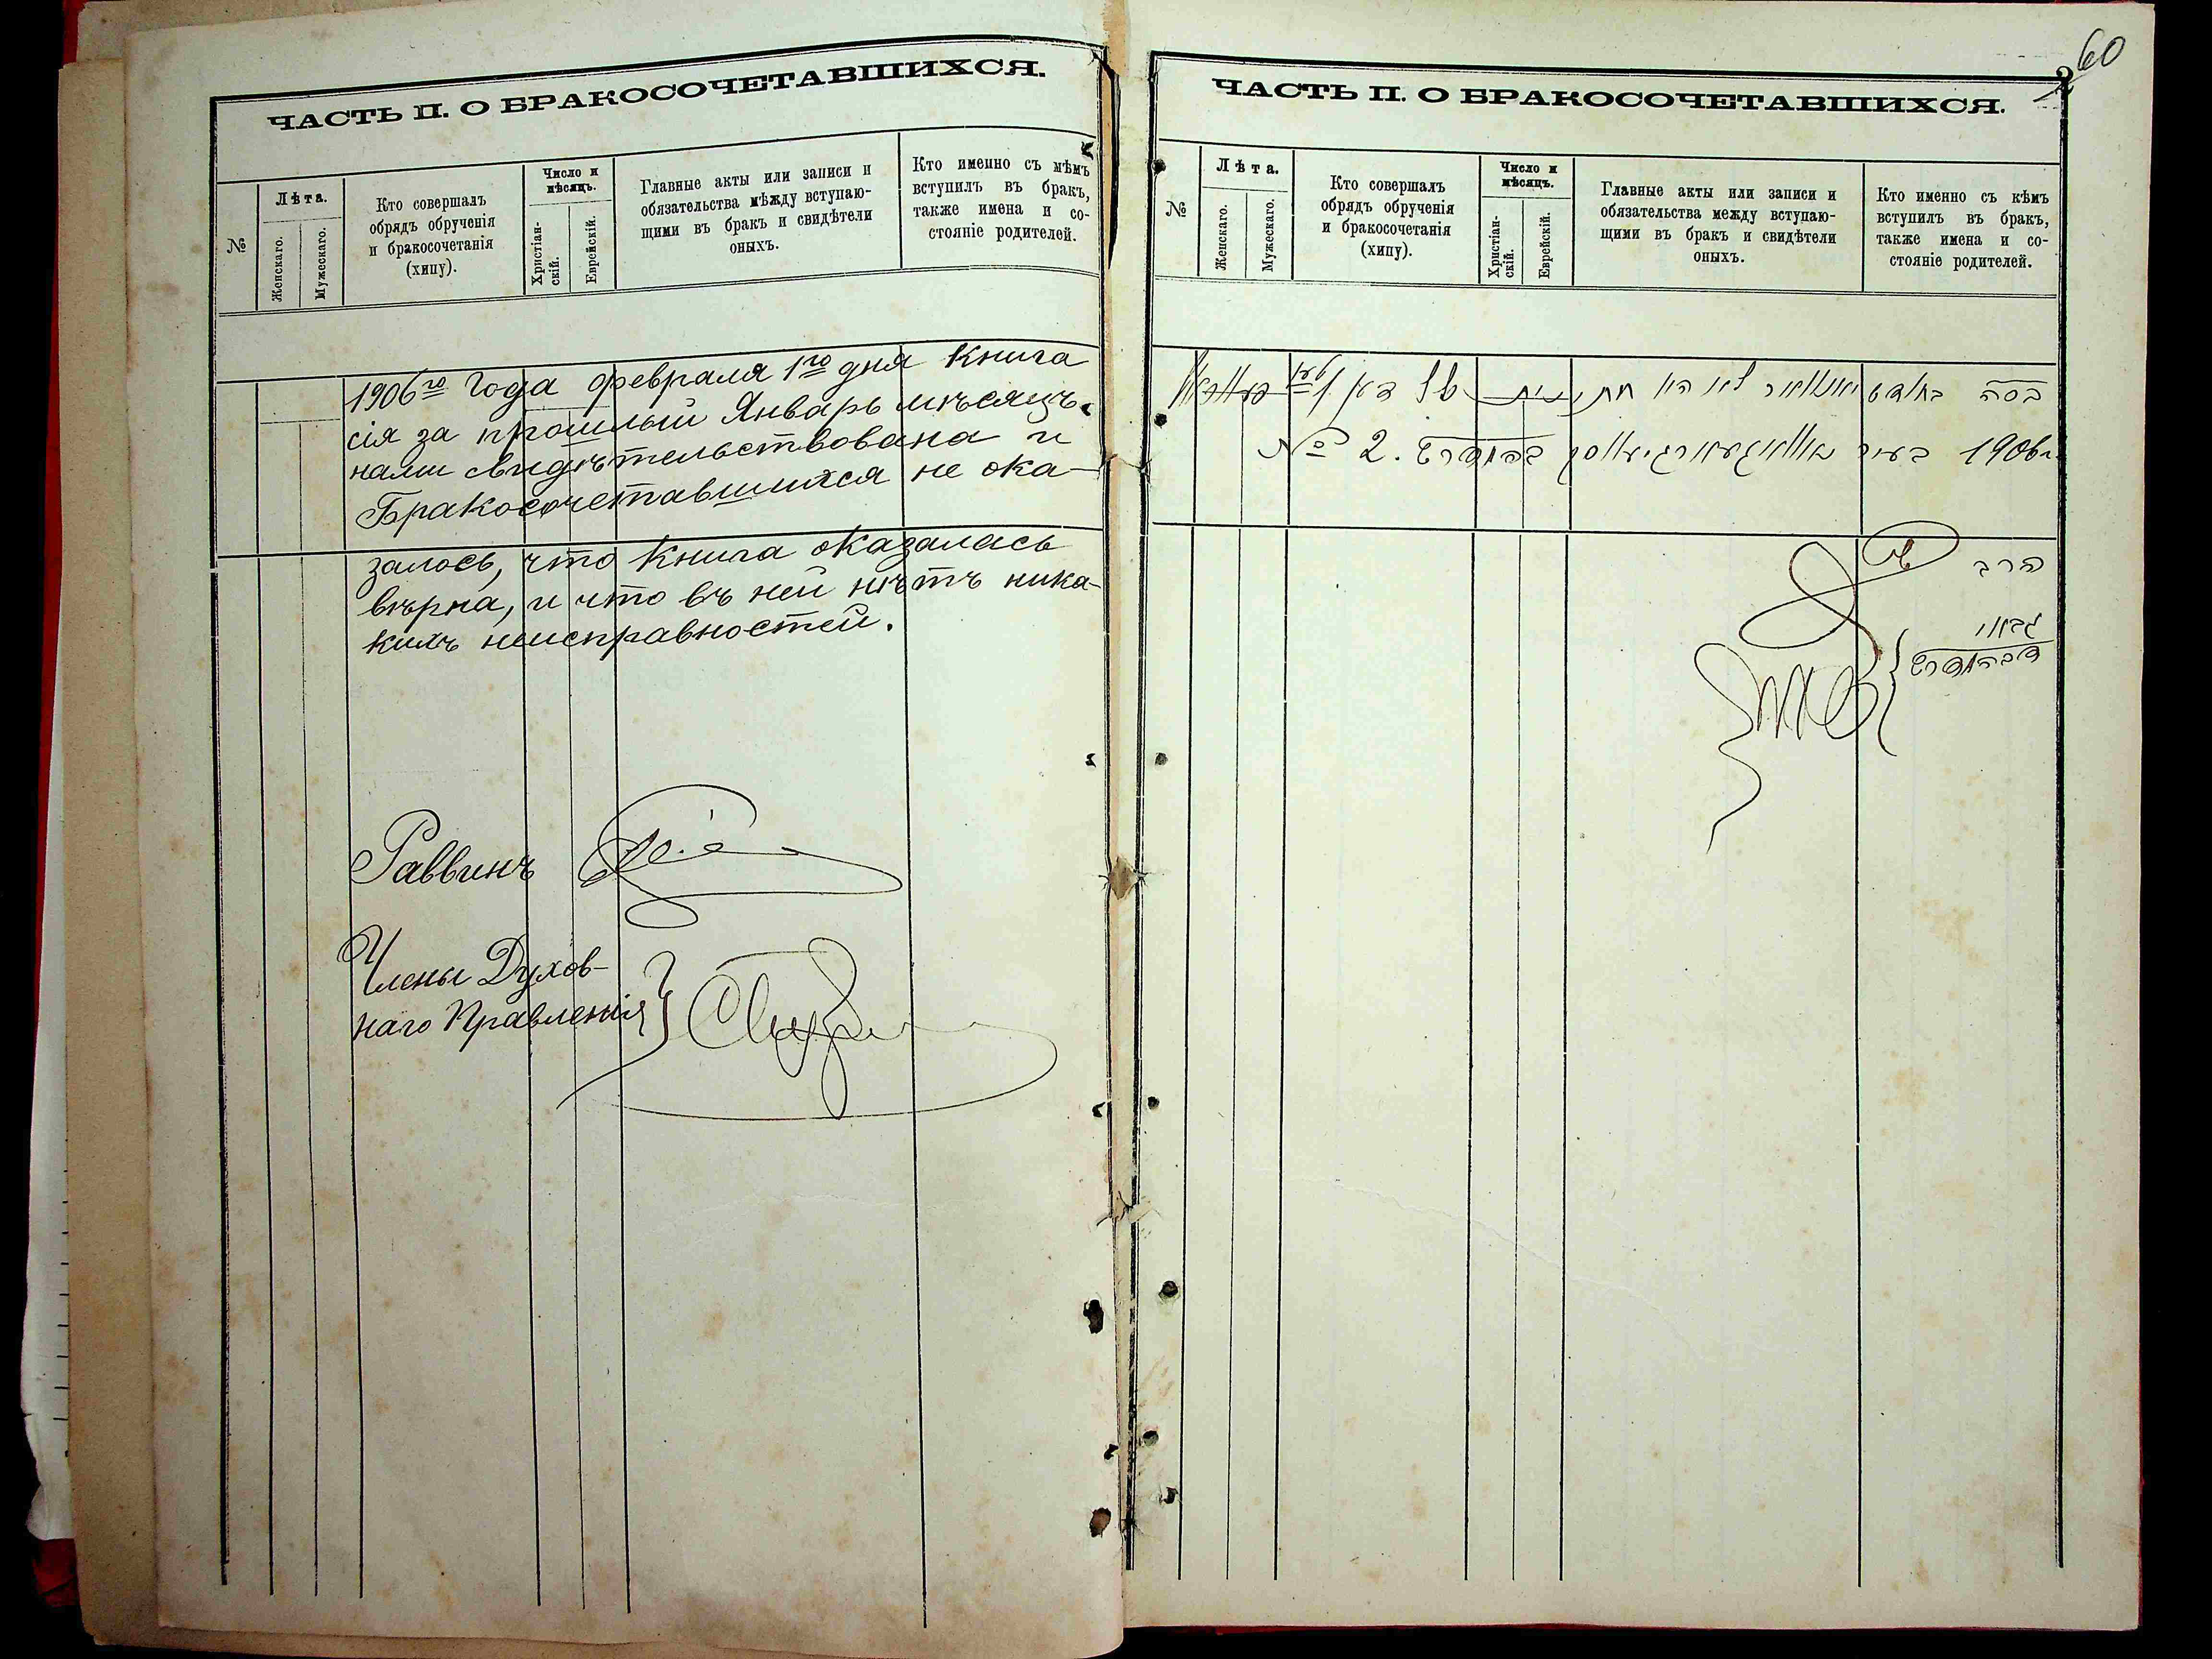 ЧАСТЬ II. О БРАКОСОЧЕТАВШИХСЯ.
№
Лѣта.
Женскаго.
Мужескаго.
Кто совершалъ
обрядъ обрученія
и бракосочетанія
(хипу).
Число и
мѣсяцъ.
Христіан-
скій.
Еврейскій.
Главные акты или записи и
обязательства мѣжду вступаю-
щими въ бракъ и свидѣтели
оныхъ.
Кто именно съ мѣмъ
вступилъ въ бракъ,
также имена и со-
стояніе родителей.
1906го Года февраля 1го дня Книга
сія за прошлый Январь мѣсяцъ
нами свидѣтельствована и
Бракосочетавшихся не ока-
залось, что Книга оказалась
вѣрна, и что въ ней нѣтъ ника-
кихъ неисправностей.
Раввинъ
Члены Духов-
наго Правленія
60
ЧАСТЬ II. О БРАКОСОЧЕТАВШИХСЯ.
№
Лѣта.
Женскаго.
Мужескаго.
Кто совершалъ
обрядъ обрученія
и бракосочетанія
(хипу).
Число и
мѣсяцъ.
Христіан-
скій.
Еврейскій.
Главные акты или записи и
обязательства между вступаю-
щими въ бракъ и свидѣтели
оныхъ.
Кто именно съ кѣмъ
вступилъ въ бракъ,
также имена и со-
стояніе родителей.
בחודש יאנוואר לא היו
1906 בעיר № 2.
הרב
גבאי